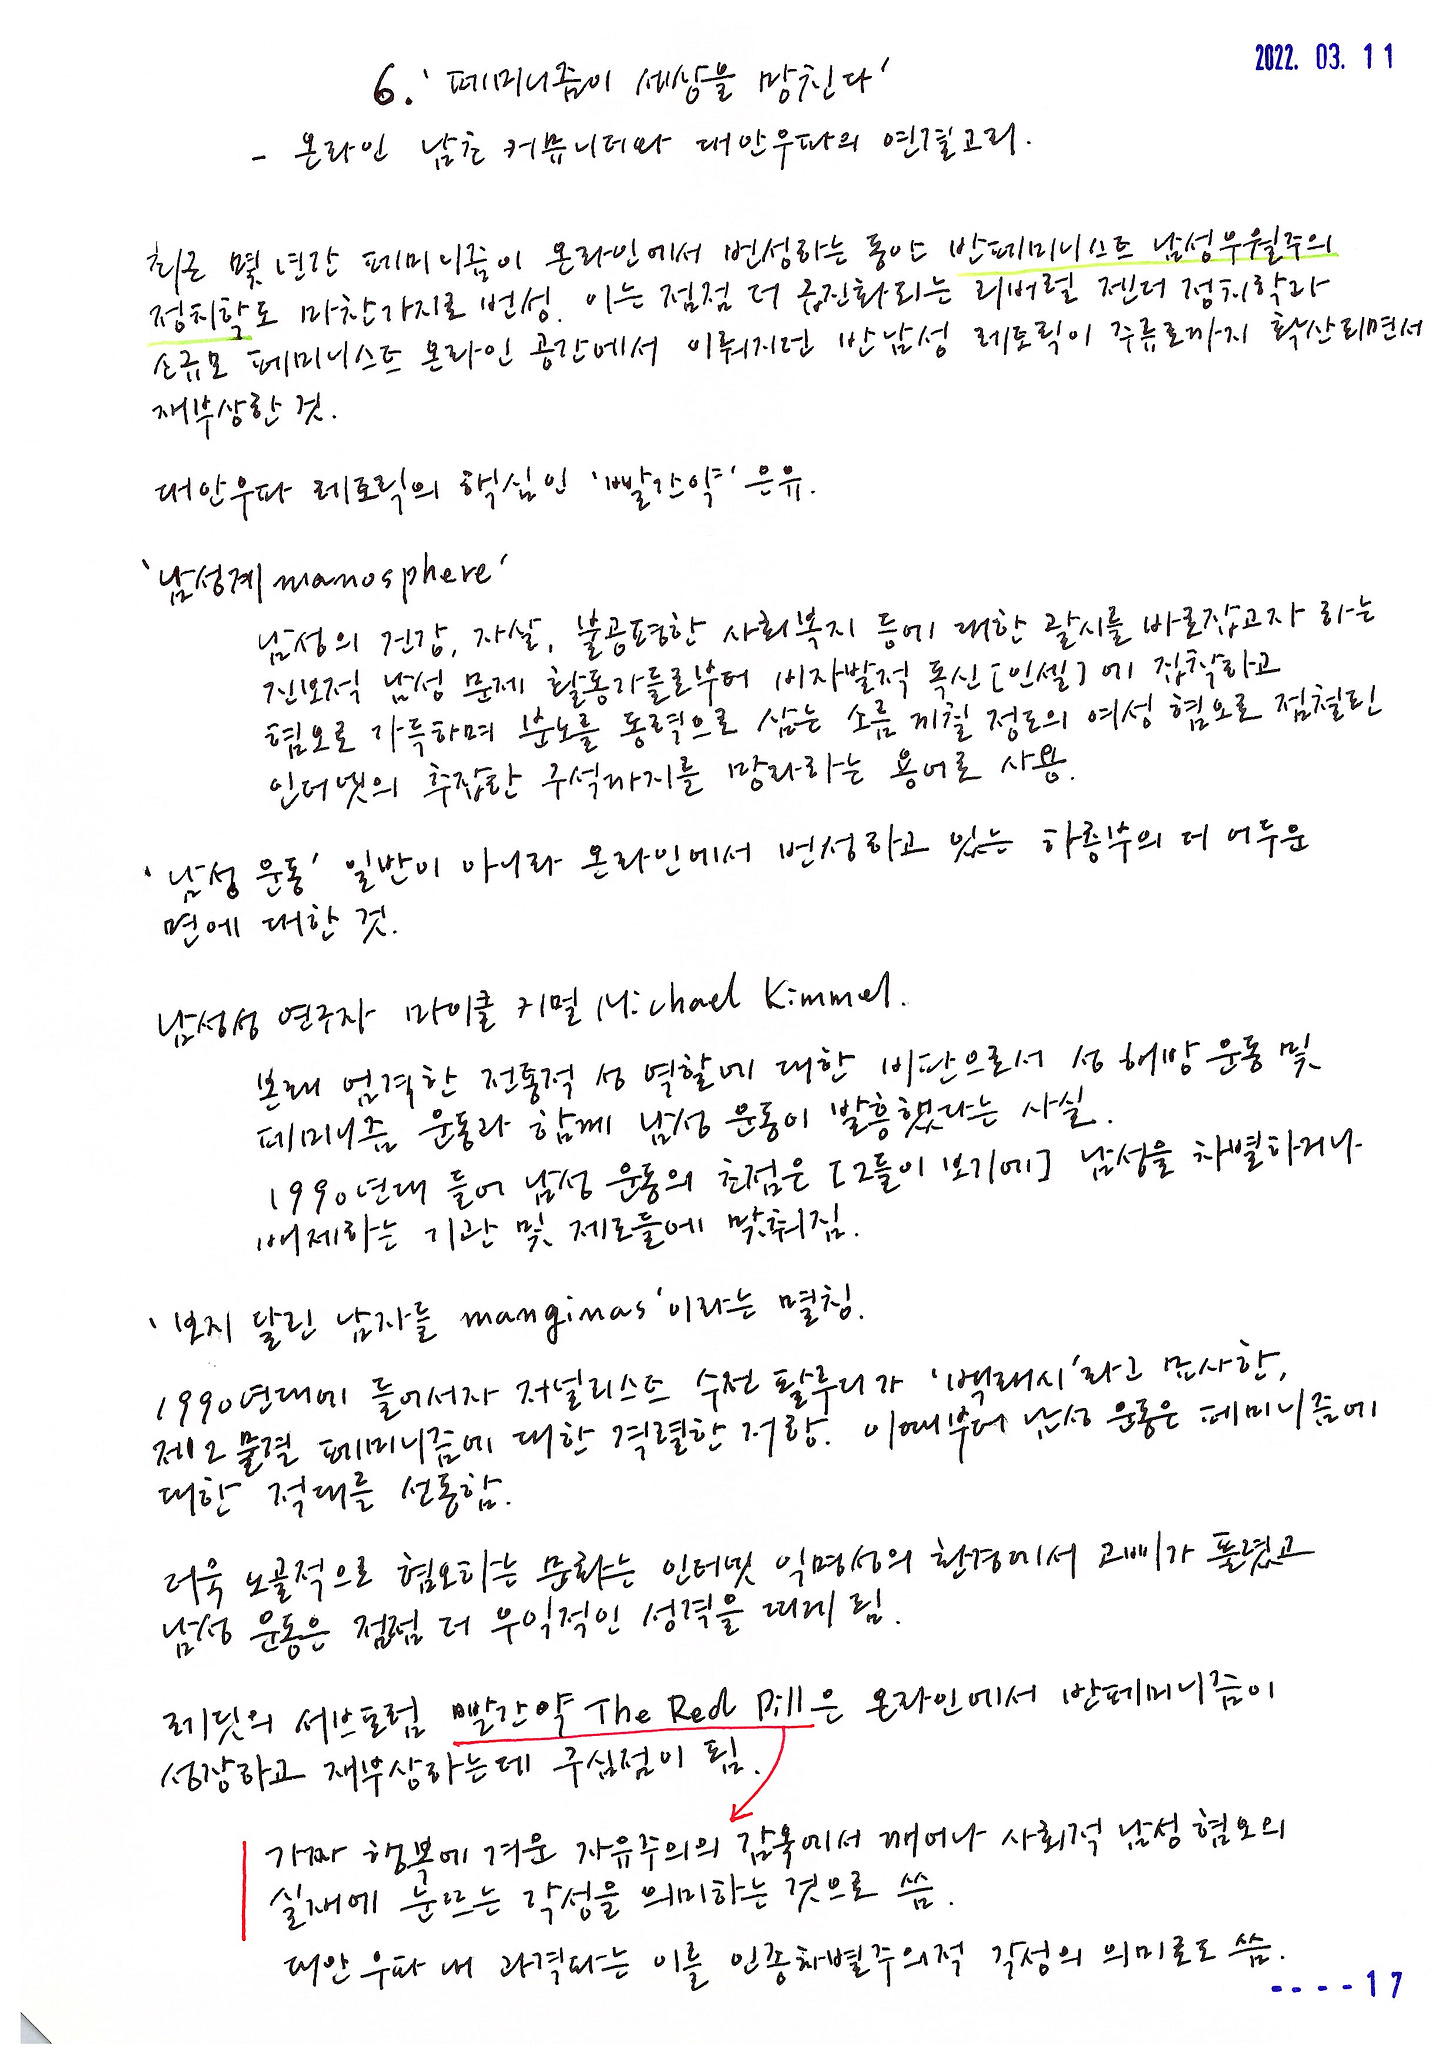 2022. 03. 11
6. '페미니즘이 세상을 망친다'
- 온라인 남초 커뮤니티와 대안우파의 연결고리.
최근 몇 년간 페미니즘이 온라인에서 번성하는 동안 반페미니스트 남성우월주의
정치학도 마찬가지로 번성. 이는 점점 더 급진화되는 리버럴 젠더 정치학과
소규모 페미니스트 온라인 공간에서 이뤄지던 반남성 레토릭이 주류로까지 확산되면서
재부상한 것.
대안우파 레토릭의 핵심인 '빨간약' 은유.
'남성계 manosphere'
남성의 건강, 자살, 불공평한 사회복지 등에 대한 괄시를 바로잡고자 하는
진보적 남성 문제 활동가들로부터 비자발적 독신[인셀]에 집착하고
혐오로 가득하며 분노를 동력으로 삼는 소름 끼칠 정도의 여성 혐오로 점철된
인터넷의 추잡한 구석까지를 망라하는 용어로 사용.
'남성 운동' 일반이 아니라 온라인에서 번성하고 있는 하층부의 더 어두운
면에 대한 것.
남성성 연구자 마이클 키멀 Michael Kimmel.
본래 엄격한 전통적 성 역할에 대한 비판으로서 성 해방 운동 및
페미니즘 운동과 함께 남성 운동이 발흥했다는 사실.
1990년대 들어 남성 운동의 초점은 [그들이 보기에] 남성을 차별하거나
배제하는 기관 및 제도들에 맞춰짐.
'보지 달린 남자들 manginas'이라는 멸칭.
1990년대에 들어서자 저널리스트 수전 팔루디가 '백래시'라고 묘사한,
제2물결 페미니즘에 대한 격렬한 저항. 이때부터 남성 운동은 페미니즘에
대한 적대를 선동함.
더욱 노골적으로 혐오하는 문화는 인터넷 익명성의 환경에서 고삐가 풀렸고
남성 운동은 점점 더 우익적인 성격을 띠게 됨.
레딧의 서브포럼 빨간약 The Red Pill은 온라인에서 반페미니즘이
성장하고 재부상하는데 구심점이 됨.
가짜 행복에 겨운 자유주의의 감옥에서 깨어나 사회적 남성 혐오의
실재에 눈뜨는 각성을 의미하는 것으로 씀.
대안 우파 내 과격파는 이를 인종차별주의적 각성의 의미로도 씀.
----17